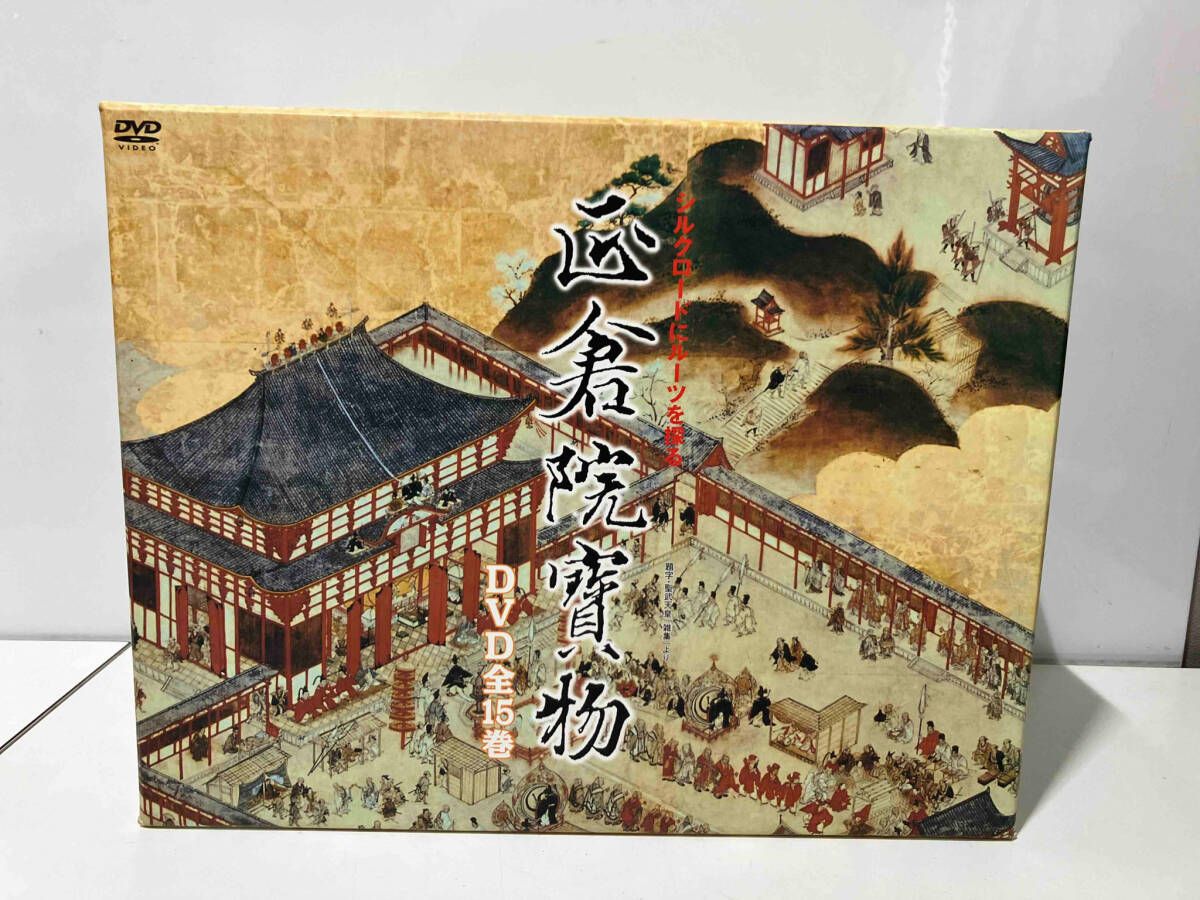 DVD
VIDEO
シルクロードにルーツを探る
正倉院寶物
題字・聖武天皇「雑集」より
DVD全15巻